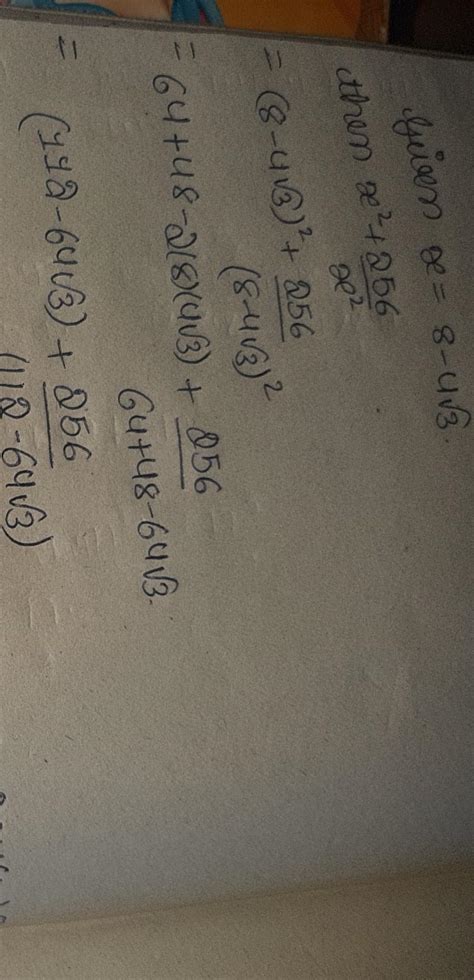 Given x = 8 - 4√3.
then x² + 256/x²
= (8 - 4√3)² + 256/(8-4√3)²
= 64 + 48 - 2(8)(4√3) + 256/64+48-64√3.
= (112 - 64√3) + 256/(112 - 64√3)